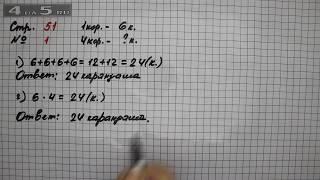 4 GDZ.RU
Стр. 51 1кор. - 6к.
№ 1 4кор. - ?к.
1) 6+6+6+6=12+12=24(к.)
Ответ: 24 карандаша
2) 6·4=24(к.)
Ответ: 24 карандаша.